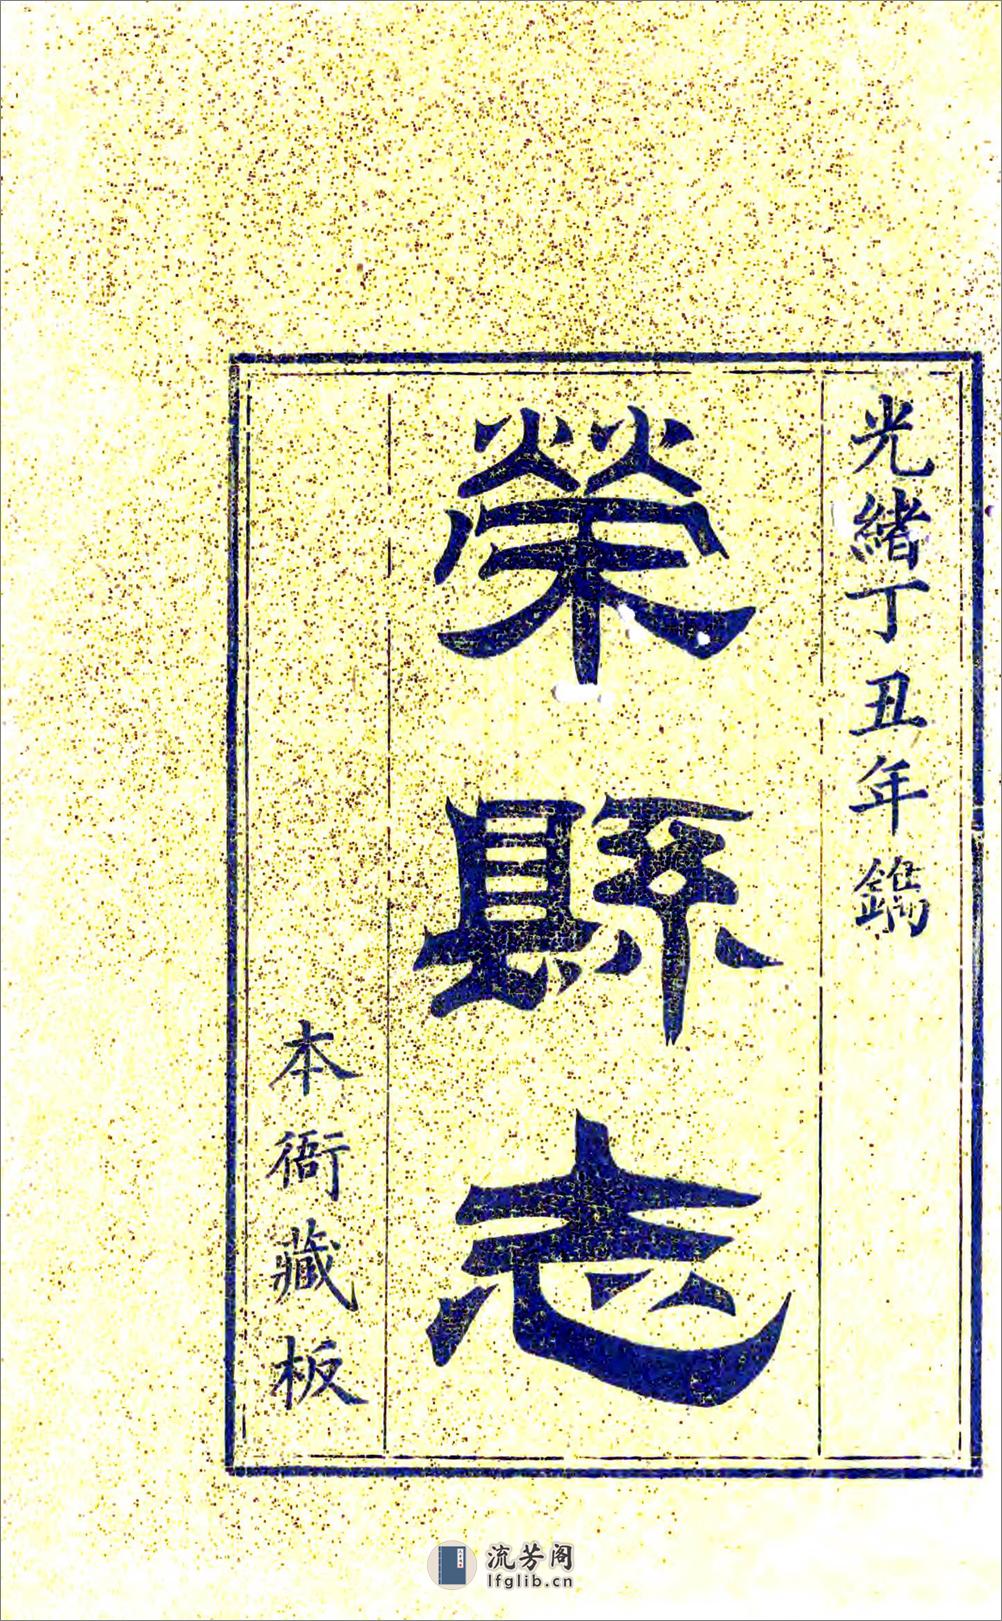 光緒丁丑年鐫
榮縣志
本衙藏板
流芳阁
lfglib.cn